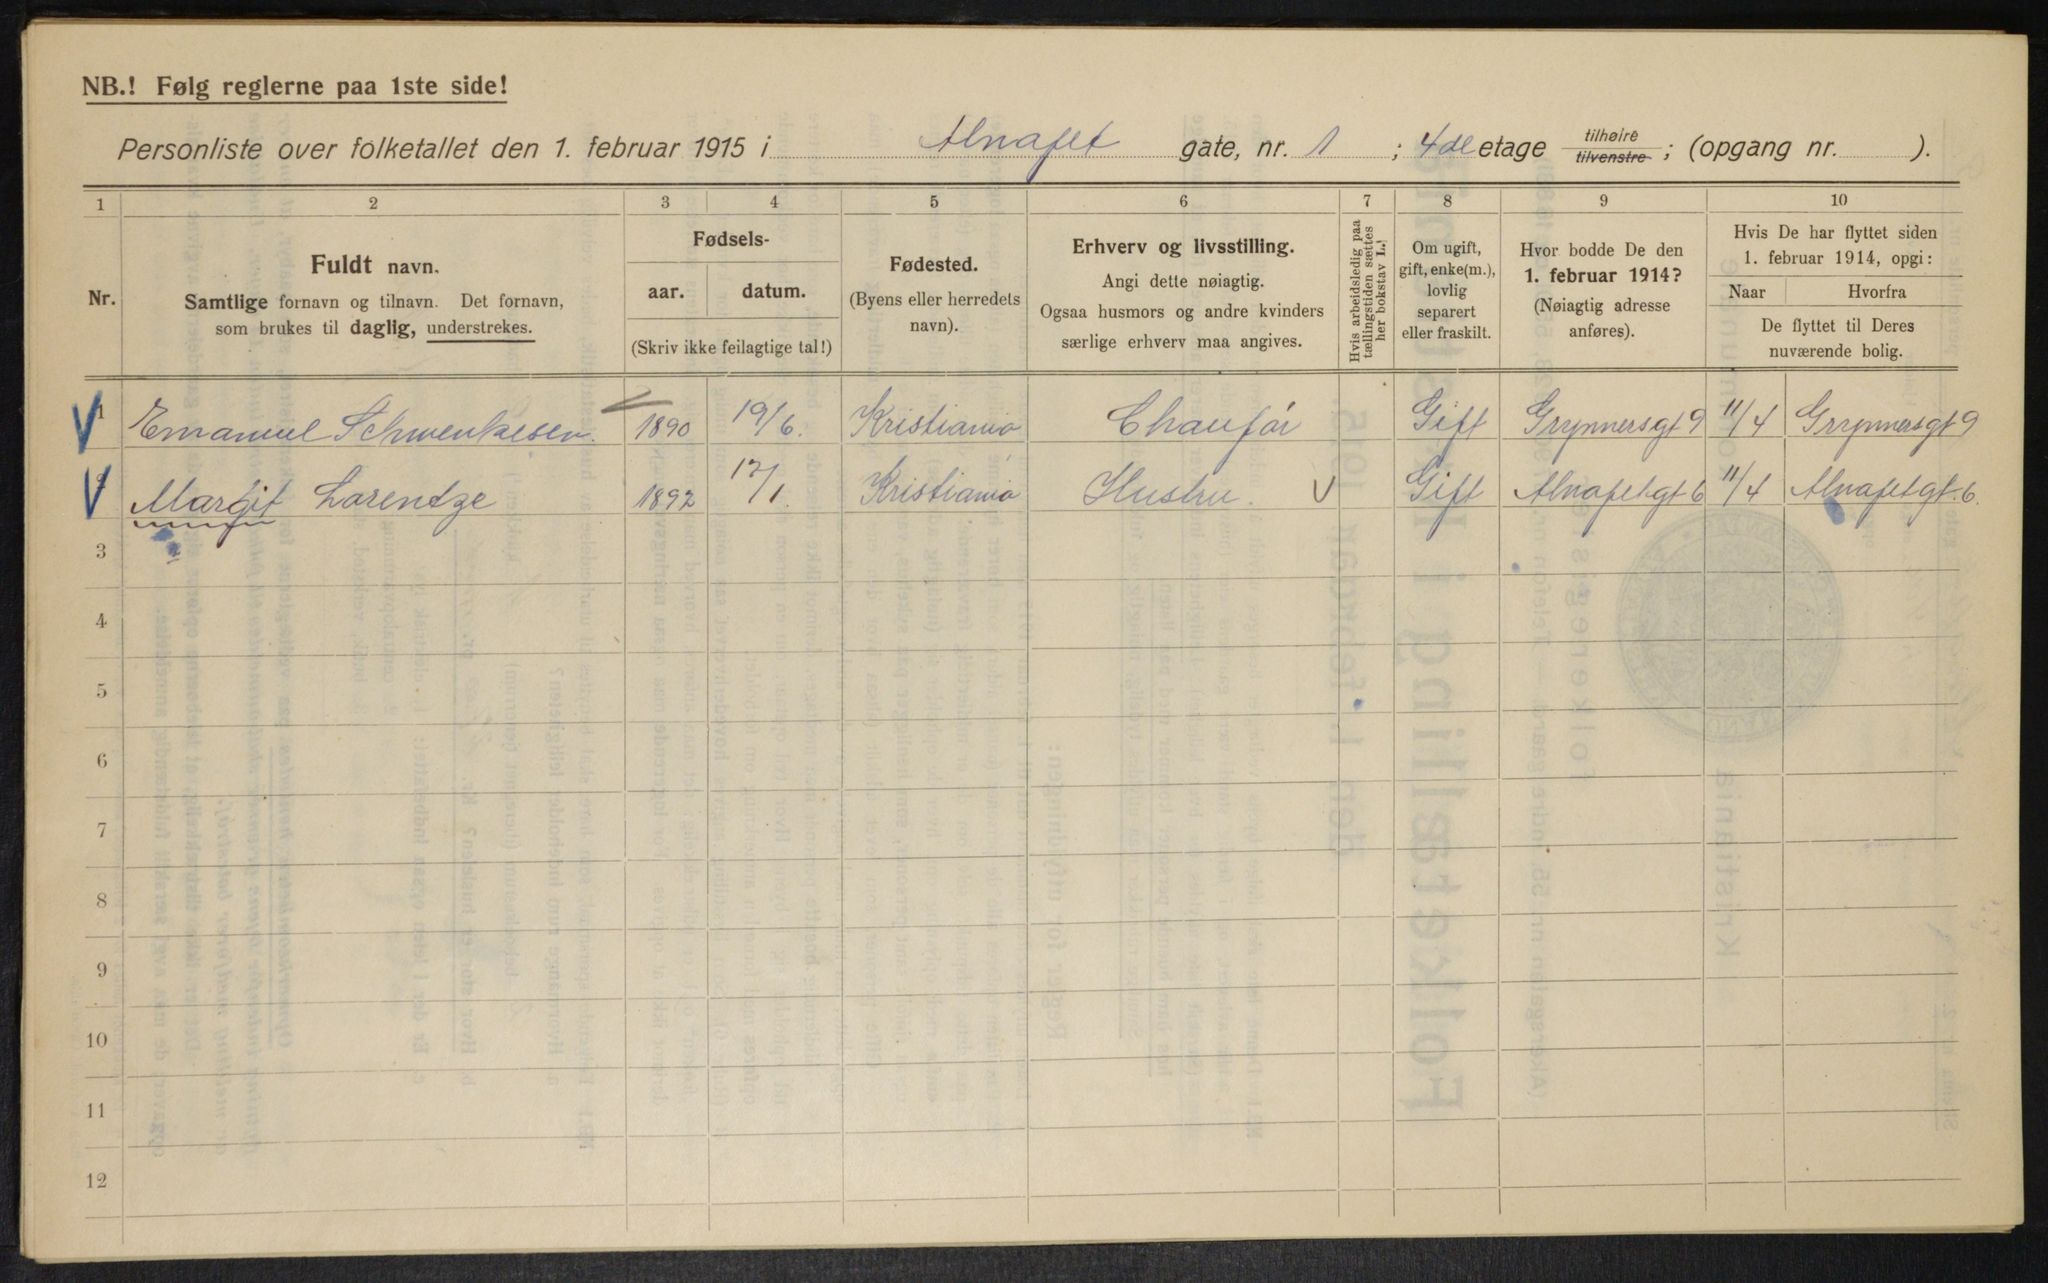 NB.! Følg reglerne paa 1ste side!
Personliste over folketallet den 1. februar 1915 i Alnafet gate, nr. 1 ; 4de etage tilhøire tilvenstre ; (opgang nr. ).
1 2 3 4 5 6 7 8 9 10
Nr.
Fuldt navn.
Samtlige fornavn og tilnavn. Det fornavn,
som brukes til daglig, understrekes.
Fødsels-
aar. datum.
(Skriv ikke feilagtige tal!)
Fødested.
(Byens eller herredets
navn).
Erhverv og livsstilling.
Angi dette nøiagtig.
Ogsaa husmors og andre kvinders
særlige erhverv maa angives.
Hvis arbeidsledig paa
tællingstiden sættes
her bokstav L.!
Om ugift,
gift, enke(m.),
lovlig
separert
eller fraskilt.
Hvor bodde De den
1. februar 1914?
(Nøiagtig adresse
anføres).
Hvis De har flyttet siden
1. februar 1914, opgi:
Naar Hvorfra
De flyttet til Deres
nuværende bolig.
1 Emanuel Schwenkesen 1890 19/6. Kristiania Chauför Gift Grynnersgt 9 11/4 Grynnersgt 9
2 Margit Lorentze 1892 17/1. Kristiania Hustru V Gift Alnafetgt 6 11/4 Alnafetgt. 6
3
4
5
6
7
8
9
10
11
12